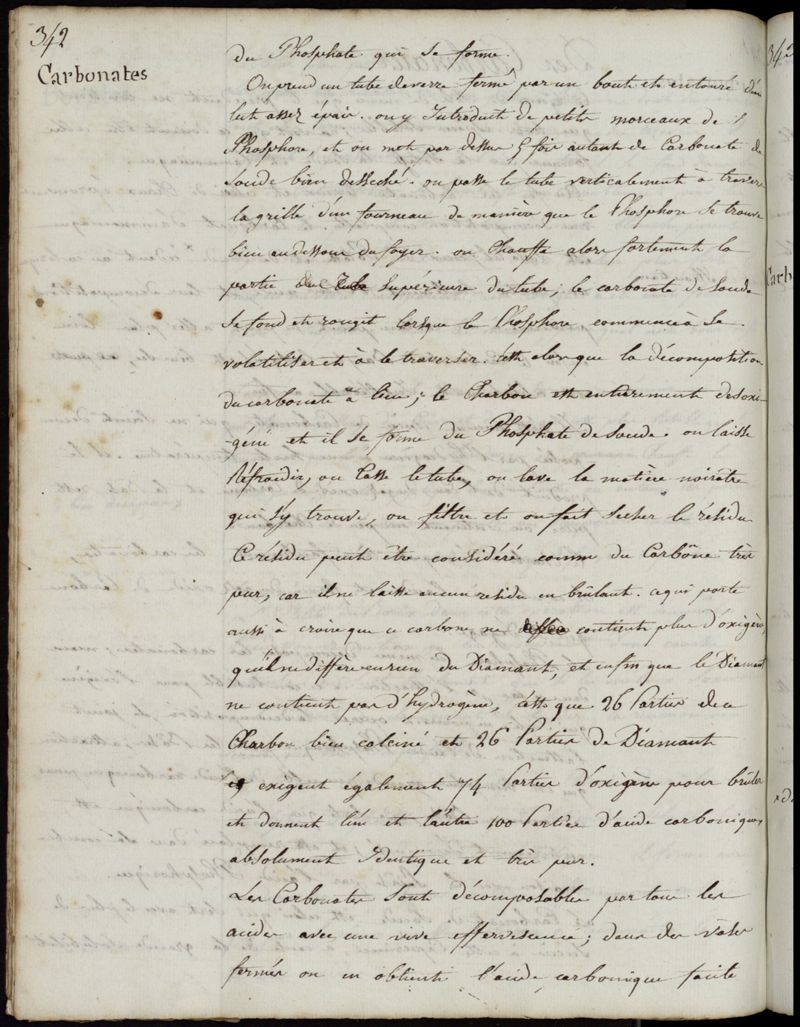 342
Carbonates
du Phosphate qui se forme.
On prend un tube de verre fermé par un bout et entouré d'un
lut assez épais. on y Introduit de petits morceaux de
Phosphore, et on met par dessus 5 fois autant de Carbonate de
soude bien desseché. on passe le tube verticalement à travers
la grille d'un fourneau de manière que le Phosphore se trouve
bien au dessous du foyer. on Chauffe alors fortement la
partie supérieure du tube; le carbonate de soude
se fond et rougit lorsque le Phosphore commence à se
volatiliser et à le traverser. C'est alors que la décomposition
du carbonate a lieu; le Charbon est entierement desoxi-
-géné et il se forme du Phosphate de soude. on laisse
réfroidir, on Casse le tube, on lave la matière noirâtre
qui s'y trouve, on filtre et on fait secher le résidu
Ce résidu peut être considéré comme du Carbône très
pur, car il ne laisse aucun residu en brûlant. ce qui porte
aussi à croire que ce carbone ne contient plus d'oxigène,
qu'il ne diffère en rien du Diamant, et enfin que le Diamant
ne contient pas d'hydrogène, c'est que 26 Parties de ce
Charbon bien calciné et 26 Parties de Diamant
exigent également 74 Parties d'oxigène pour brûler
et donnent l'un et l'autre 100 Parties d'acide carbonique,
absolument Identique et très pur.
Les Carbonates sont décomposables par tous les
acides avec une vive effervescence; dans des vases
fermés on en obtient l'acide carbonique facile
342
Carb